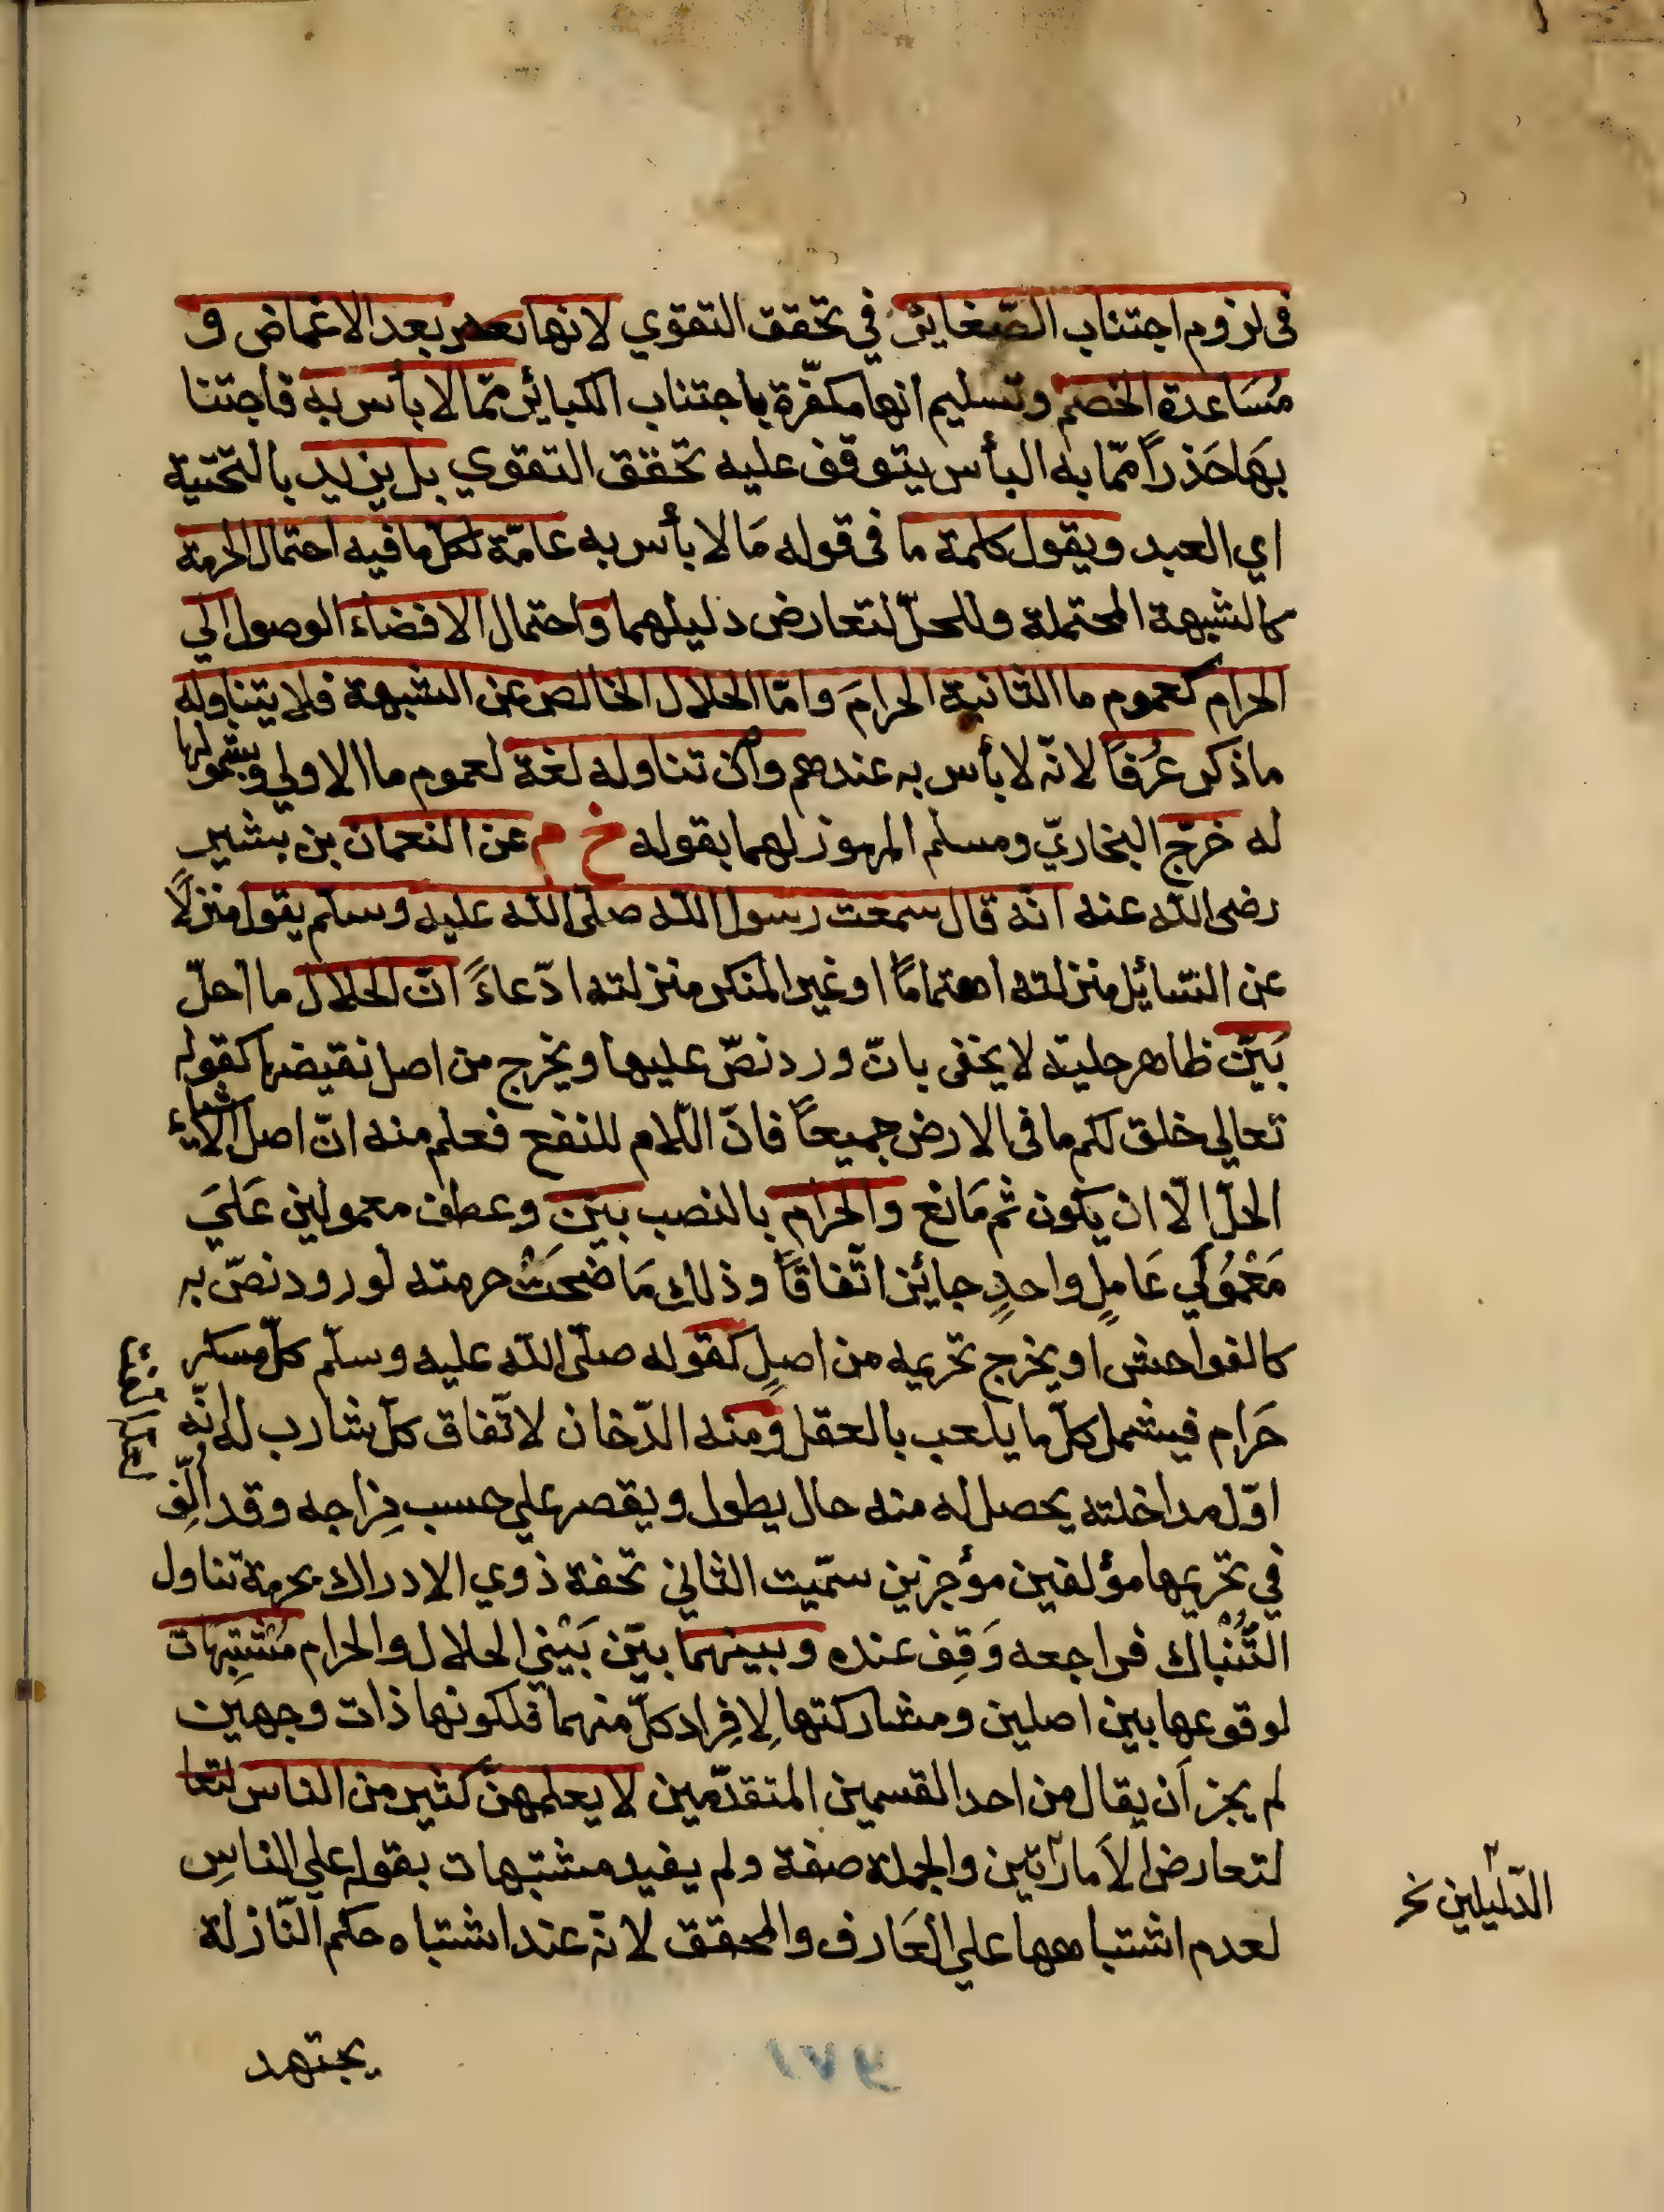 فى لزوم اجتناب الصّغائر في تحقق التقوي لانها بعد الاغماض و
مُسَاعدة الخصم وتسليم انها مكفّرة باجتناب الكبائر ممّا لا بأس به فاجتنا
بهَا حَذراً ممّا به البأس يتوقف عليه تحقق التقوي بل يزيد بالتحتية
اي العبد ويقول كلمة ما فى قوله مَا لا بأس به عامّة لكل ما فيه احتمال الحرمة
كالشبهة المحتملة وللحلّ لتعارض دليلهما واحتمال الافضاء الوصول الي
الحرام كعموم ما الثانية الحرامَ وامّا الحلال الخالص عن الشبهة فلا يتناوله
ماذكر عُرفاً لانّه لا بأس به عندهم وان تناوله لغة لعموم ما الاولي وشمولها
له خرّج البخاريّ ومسلم المرموز لهما بقوله خ م عن النعمان بن بشير
رضى الله عنه انّه قال سمعت رسول الله صلى الله عليه وسلّم يقول منزلاً
عن السّائل منزلته اهتماماً او غير المنكر منزلته ادّعاءً انّ الحلال ما احلّ
بَيّن ظاهر حليته لا يخفى بانّ ورد نصّ عليها ويخرج من اصل نقيضها كقوله
تعالي خلق لكم ما فى الارض جميعاً فانّ اللّام للنفع فعلم منه انّ اصل الاشياء
الحلّ الّا ان يكون ثم مَانع والحرام بالنصب بيّن وعطف معمولين عَليَ
مَعْمُولَي عَاملٍ واحدٍ جائز اتّفاقاً وذلك مَا ضحَتْ حرمته لورود نصّ به
كالفواحش او يخرج تحريمه من اصلٍ كقوله صلّى الله عليه وسلّم كلّ مسكر
حَرام فيشمل كلّ ما يلعب بالعقل ومنه الدّخان لاتّفاق كلّ شارب له انّه
اوّل مداخلته يحصل له منه حال يطول ويقصر علي حسب مِزاجه وقد اُلِّف
في تحريمها مؤلفين مؤجزين سمّيت الثاني تحفة ذوي الادراك بحرمة تناول
التُّنْبُاك فراجعه وَقِف عنده وبينهما بيّن بَيْنِي الحلال والحرام مُشْتَبِهات
لوقوعها بين اصلين ومشاركتها لِافِراد كلّ منهما فلكونها ذات وجهين
لم يجز اَن يقال من احد القسمين المتقدّمين لا يعلمهنّ كثير من الناس لتعا
لتعارض الاَماراتين والجملة صفة ولم يفيد مشتبهات بقوله علي الناسِ
الدّليلين نخ
لعدم اشتباهها علي العَارف والمحقق لانّه عند اشتباه حكم النّازلة
يجتهد